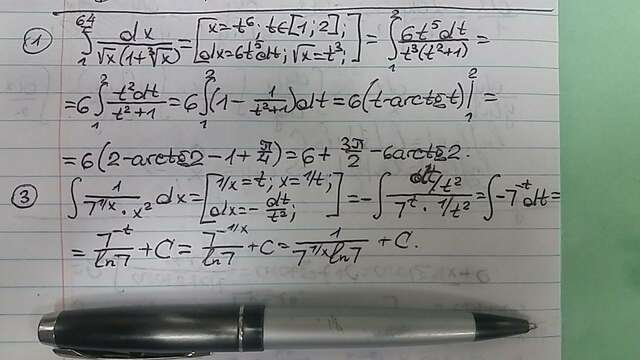 ① ∫₁⁶⁴ dx/(√x(1+∛x)) = [x=t⁶; t∈[1;2]; dx=6t⁵dt; √x=t³;] = ∫₁² 6t⁵dt/(t³(t²+1)) =
= 6∫₁² t²dt/(t²+1) = 6∫₁² (1 - 1/(t²+1))dt = 6(t-arctg t)|₁² =
= 6(2-arctg2-1+π/4) = 6+ 3π/2 - 6arctg2.
③ ∫ 1/(7^(1/x) · x²) dx = [1/x=t; x=1/t; dx=-dt/t²;] = -∫ dt/t²/(7^t · 1/t²) = ∫-7^(-t) dt =
= 7^(-t)/ln7 + C = 7^(-1/x)/ln7 + C = 1/(7^(1/x) ln7) + C.